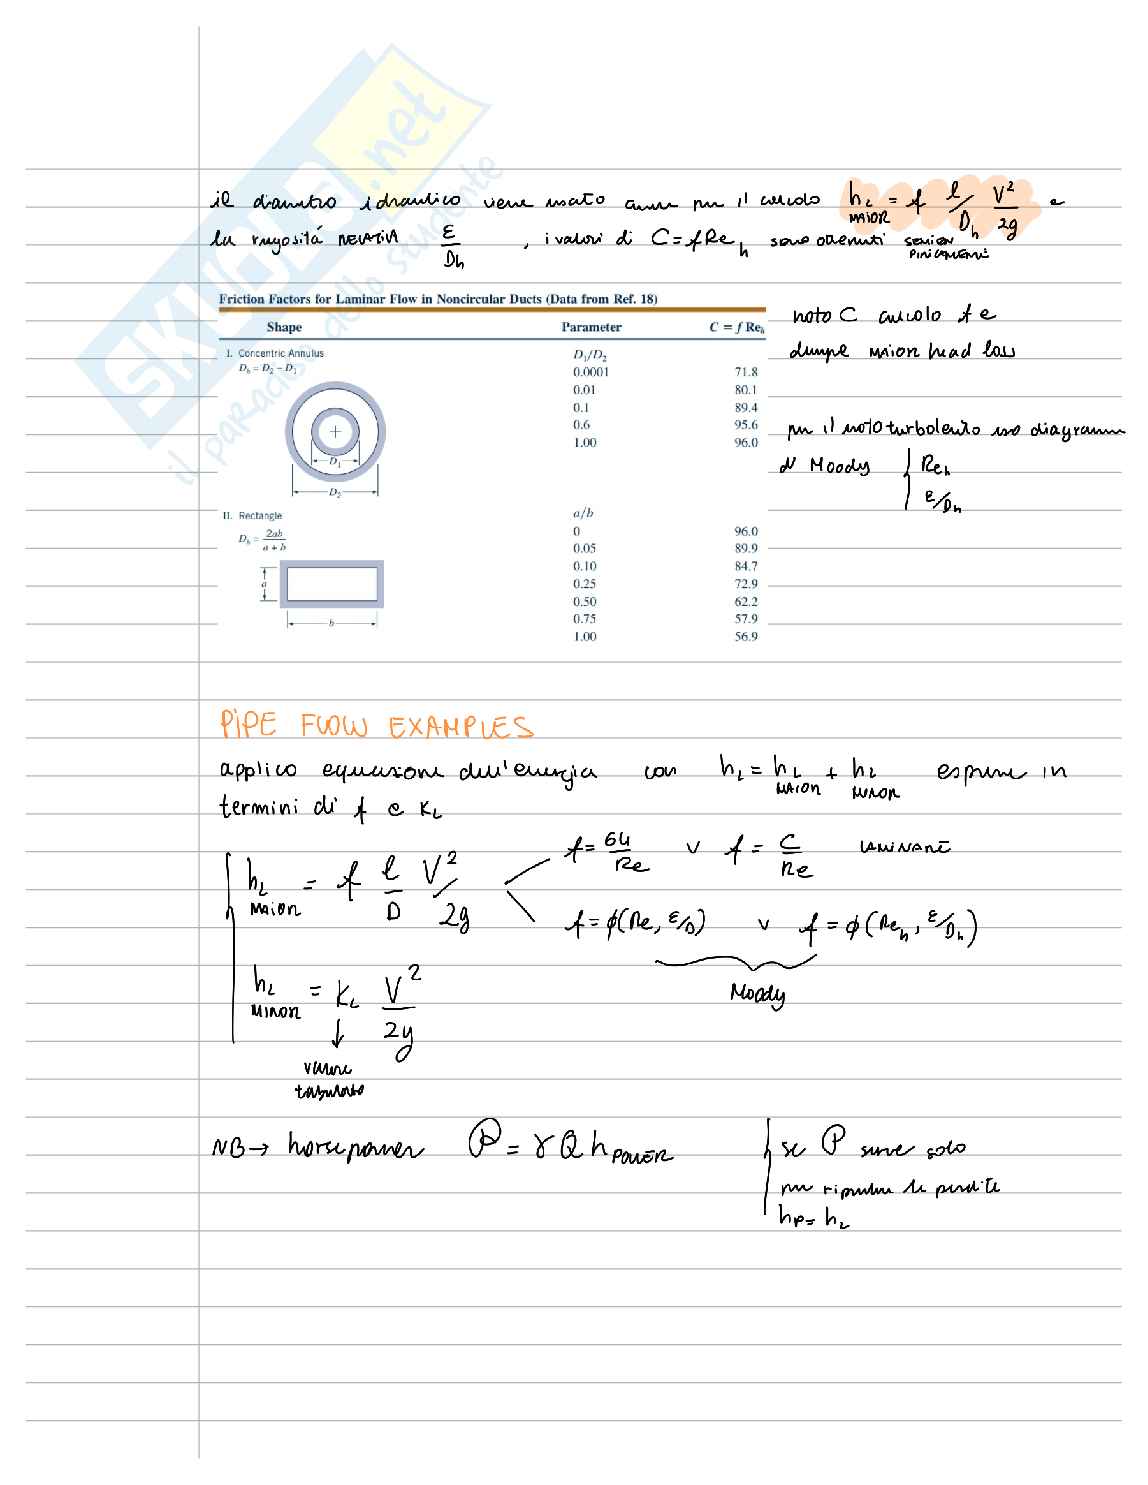 SKUOLA.net
il paradiso dello studente
il diametro idraulico viene usato anche per il calcolo h_L MAIOR = f l/D_h V²/2g e
la rugosità RELATIVA ε/D_h , i valori di C = f Re_h sono ottenuti SEMIEMPIRICAMENTE
Friction Factors for Laminar Flow in Noncircular Ducts (Data from Ref. 18)
Shape Parameter C = f Re_h
I. Concentric Annulus D₁/D₂
D_h = D₂ − D₁ 0.0001 71.8
0.01 80.1
0.1 89.4
0.6 95.6
1.00 96.0
D₁
D₂
II. Rectangle a/b
D_h = 2ab/(a + b) 0 96.0
0.05 89.9
0.10 84.7
a 0.25 72.9
0.50 62.2
b 0.75 57.9
1.00 56.9
noto C calcolo f e
dunque MAIOR head loss
per il moto turbolento uso diagramma
di Moody { Re_h
ε/D_h
PIPE FLOW EXAMPLES
applico equazione dell'energia con h_L = h_L MAIOR + h_L MINOR espresse in
termini di f e K_L
h_L MAIOR = f l/D V²/2g
f = 64/Re v f = C/Re LAMINARE
f = ϕ(Re, ε/D) v f = ϕ(Re_h, ε/D_h)
Moody
h_L MINOR = K_L V²/2g
valore
tabulato
NB → horsepower P = γ Q h_POWER
se P serve solo
per ripristinare le perdite
h_P = h_L